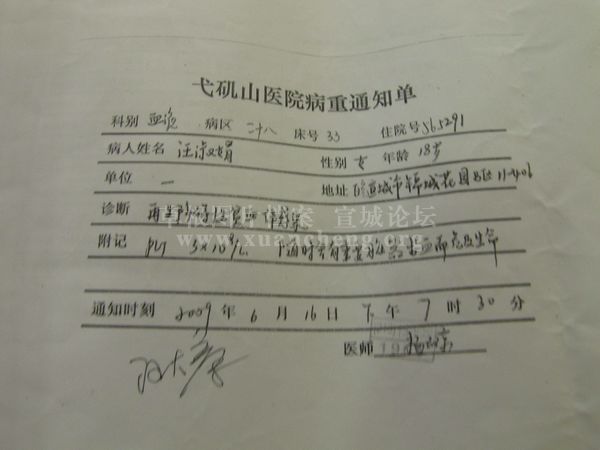 弋矶山医院病重通知单
科别 血液 病区 二十八 床号 33 住院号 565291
病人姓名 汪 娟 性别 女 年龄 18岁
单位 — 地址 宣城市锦城花园 11-406
诊断 再生障碍性贫血
附记 5×10⁹/L 随时有 出血而危及生命
通知时刻 2009 年 6 月 16 日 下 午 7 时 30 分
医师
宣城论坛
www.xuancheng.org